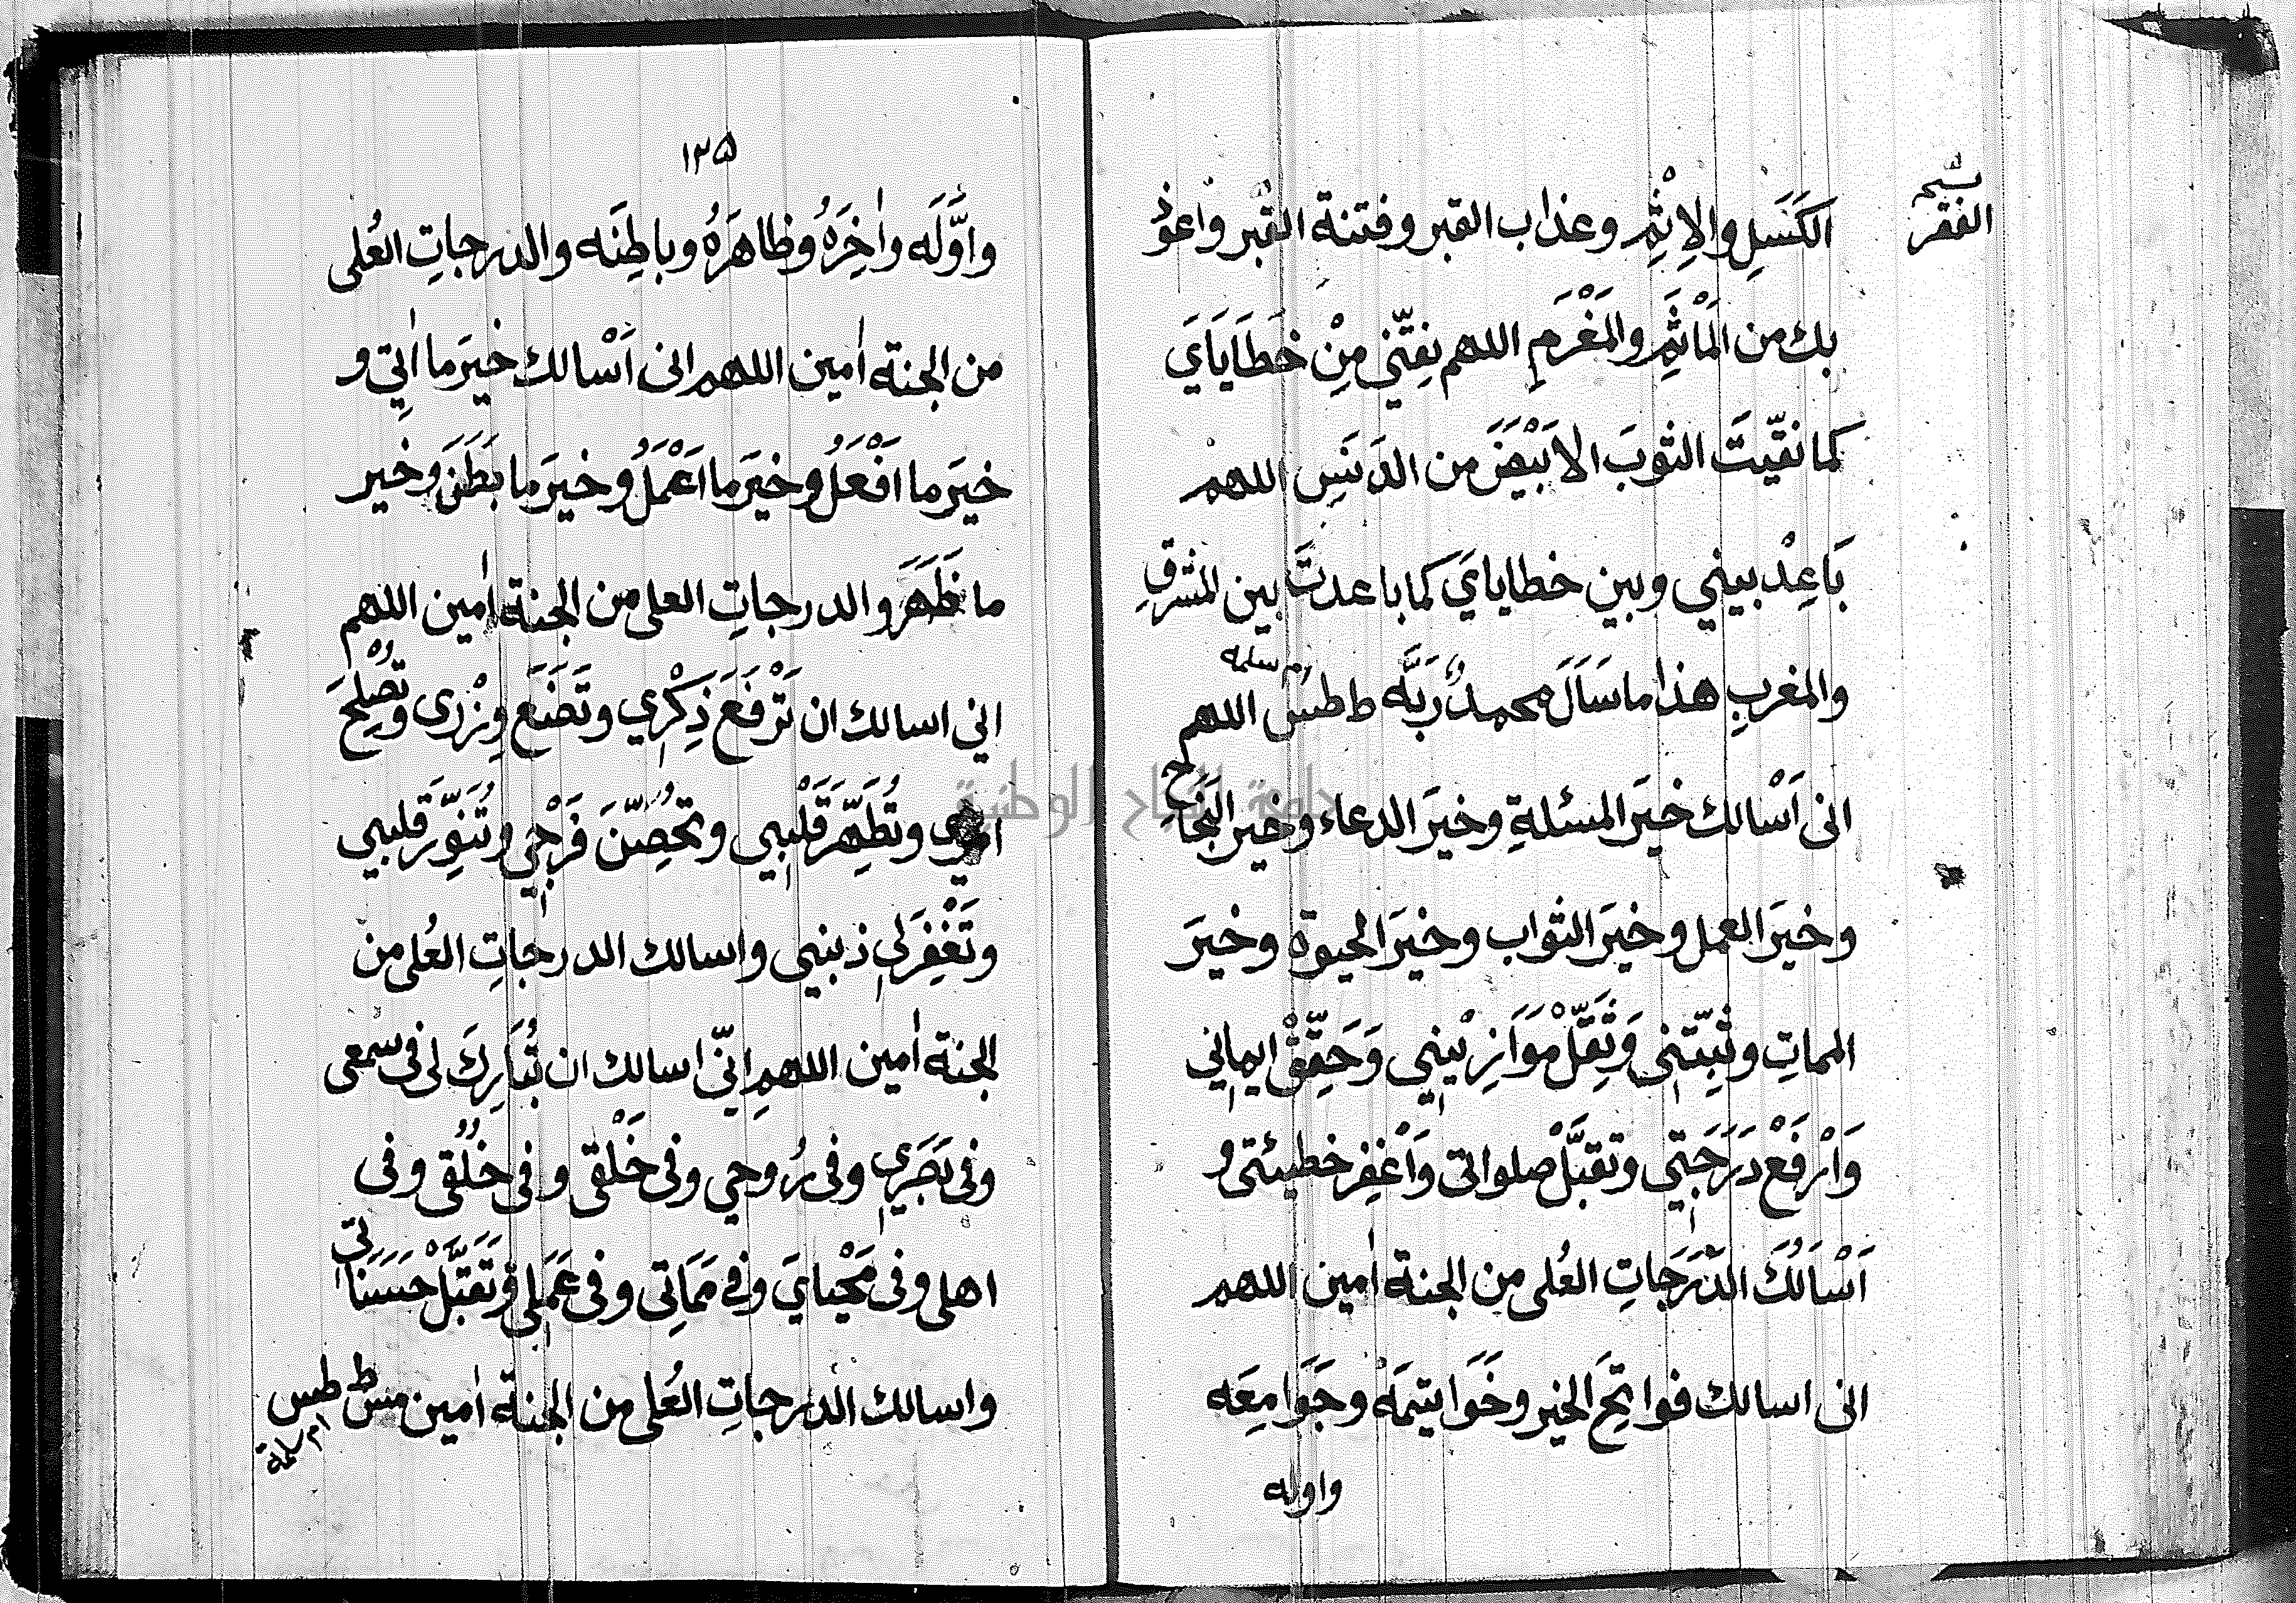 نسخه
الفقر
الكَسَلِ والاِثْمِ وعذاب القبر وفتنة القبر واعوذ
بك من المَاْثَمِ والمَغْرَمِ اللهم نقِّني مِنْ خَطَايَايَ
كما نقّيتَ الثوبَ الاَبْيَضَ من الدَنَسِ اللهم
بَاعِدْ بيني وبين خطايايَ كما باعدتَ بين المشرقِ
والمغربِ هذا ما سَاَلَ محمدٌ رَبَّه ط طس اللهم
ام سلمه
انى اَسْالك خيرَ المسئلةِ وخيرَ الدعاء وخير النَجَاحِ
وخيرَ العمل وخيرَ الثواب وخيرَ الحيوة وخيرَ
المماتِ وثبِّتنى وَثَقِّلْ مَوَازِيْنِي وَحَقِّقْ ايماني
وَارْفَعْ دَرَجَتِي وتقبَّلْ صلواتى وَاغْفِر خطيئتى و
اَسْاَلُكَ الدَّرَجَاتِ العُلى من الجنة اٰمين اللهم
انى اسالك فواتِحَ الخير وخَوَاتِمَهْ وجَوَامِعَه
واوله
١٣٥
واَوَّلَه واٰخِرَهُ وظاهرَهُ وباطِنَه والدرجاتِ العُلى
من الجنة اٰمين اللهم انى اَسْالك خيرَ ما اٰتِي و
خيرَ ما افْعَلُ وخيَر ما اَعْمَلُ وخيرَ ما بَطَنَ وخير
ما ظَهَرَ والدرجاتِ العلى من الجنة اٰمين اللهم
اني اسالك ان تَرْفَعَ ذِكْرِي وتَضَعَ وِزْرى وتُصْلِحَ
امري وتُطَهِّرَ قَلْبِي وتُحَصِّنَ فَرْجِي وتُنَوِّرَ قلبي
وتَغْفِرَ لي ذنبي واسالك الدرجاتِ العُلى من
الجنة اٰمين اللهم انّي اسالك ان تُبَارِكَ لى فى سمعى
وفى بَصَرِي وفى رُوحي وفى خَلْقى وفى خُلُقى وفى
اهلى وفى مَحْيايَ وفي مَمَاتِى وفى عَمَلِي وَتَقَبَّلْ حَسَنَاتى
واسالك الدرجاتِ العُلى من الجنة اٰمين مس ط طس
ام سلمة
جامعة النجاح الوطنية